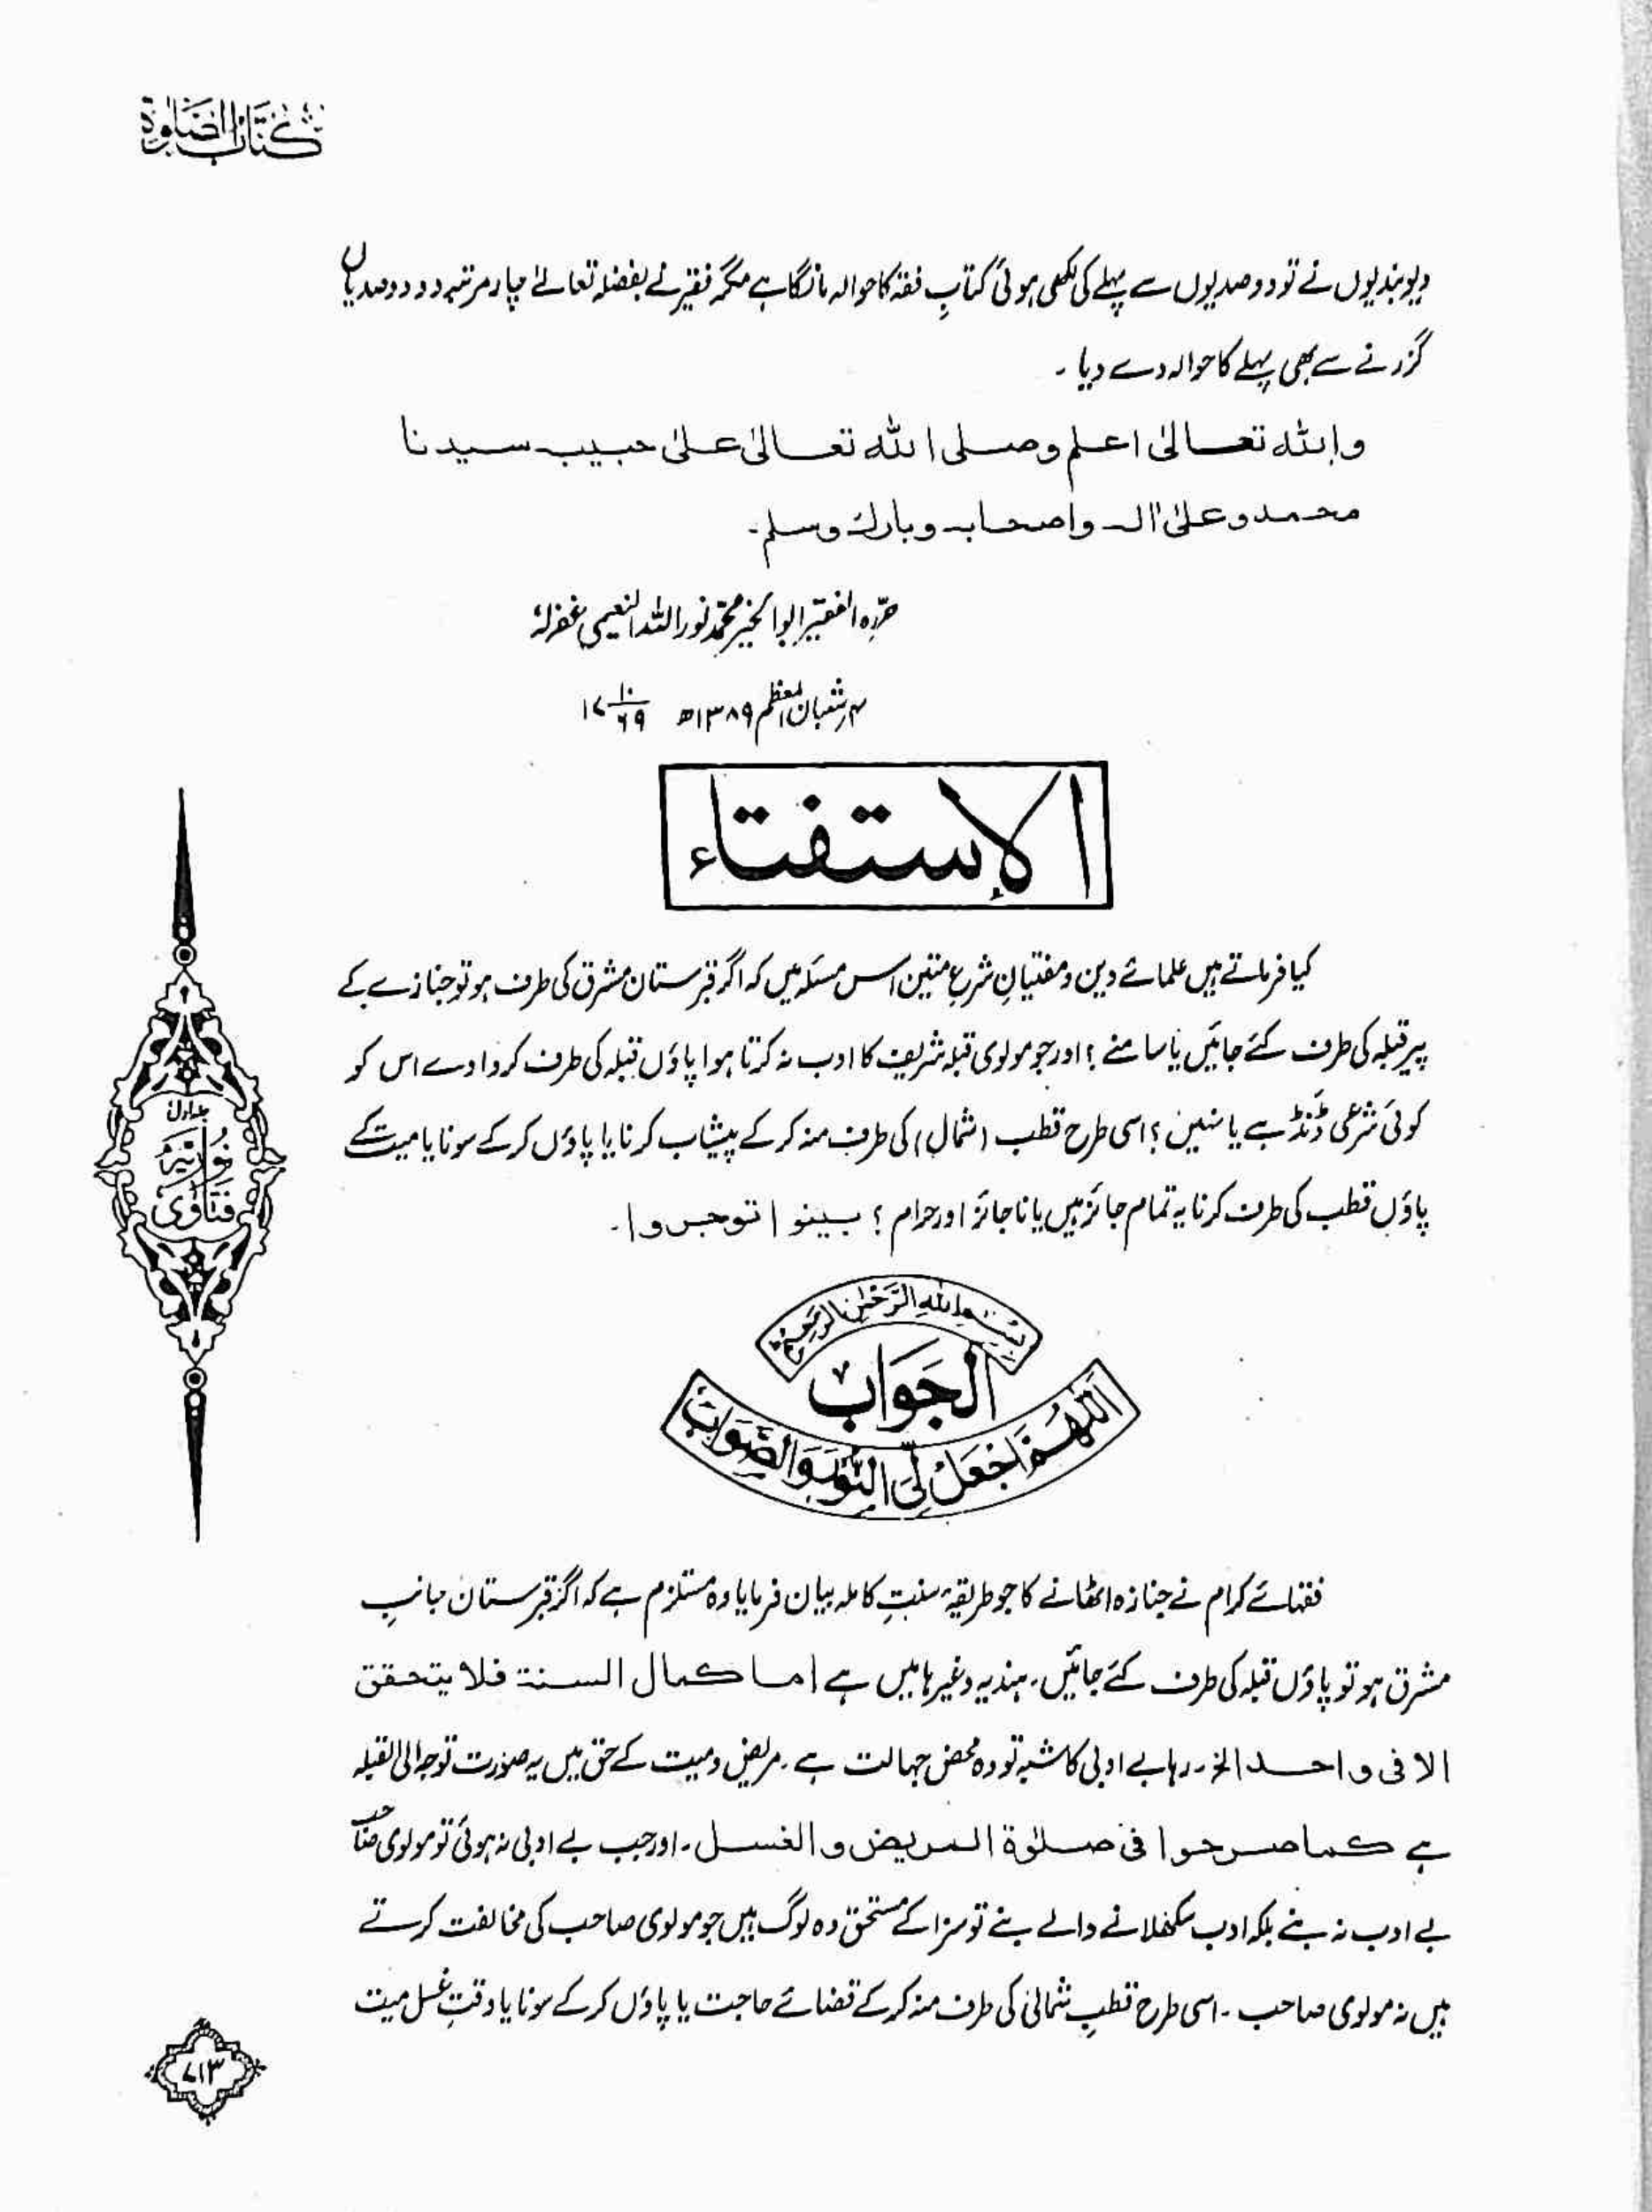 كتاب الصلوة
دیوبندیوں نے تو دو صدیوں سے پہلے کی لکھی ہوئی کتابِ فقہ کا حوالہ مانگا ہے مگر فقیر نے بفضلہ تعالےٰ چار مرتبہ دو دو صدیاں
گزرنے سے بھی پہلے کا حوالہ دے دیا ۔
واللہ تعالیٰ اعلم وصلی اللہ تعالیٰ علیٰ حبیبہ سیدنا
محمد وعلیٰ اٰلہ واصحابہ وبارك وسلم۔
حررہ الفقیر ابوالخیر محمد نور اللہ النعیمی غفرلہٗ
۴ شعبان المعظم ۱۳۸۹ھ ۱۷/۱۰/۶۹
الإستفتاء
کیا فرماتے ہیں علمائے دین و مفتیانِ شرعِ متین اس مسئلہ میں کہ اگر قبرستان مشرق کی طرف ہو تو جنازے کے
پیر قبلہ کی طرف کئے جائیں یا سامنے ؟ اور جو مولوی قبلہ شریف کا ادب نہ کرتا ہوا پاؤں قبلہ کی طرف کروا دے اس کو
کوئی شرعی ڈنڈ ہے یا نہیں ؟ اسی طرح قطب (شمال) کی طرف منہ کر کے پیشاب کرنا یا پاؤں کر کے سونا یا میت کے
پاؤں قطب کی طرف کرنا یہ تمام جائز ہیں یا ناجائز اور حرام ؟ بینوا توجروا۔
جلد اول
نوریہ
فتاویٰ
بسم الله الرحمن الرحيم
الجواب
اللهم اجعل لي النور والصواب
فقہائے کرام نے جنازہ اٹھانے کا جو طریقۂ سنتِ کاملہ بیان فرمایا وہ مستلزم ہے کہ اگر قبرستان جانبِ
مشرق ہو تو پاؤں قبلہ کی طرف کئے جائیں، ہندیہ وغیرہا میں ہے اما کمال السنۃ فلا یتحقق
الا فی واحد الخ۔ رہا بے ادبی کا شبہ تو وہ محض جہالت ہے۔ مریض و میت کے حق میں یہ صورت توجہ الی القبلہ
ہے کما صرحوا فی صلوٰۃ المریض والغسل۔ اور جب بے ادبی نہ ہوئی تو مولوی صاحب
بے ادب نہ بنے بلکہ ادب سکھلانے والے بنے تو سزا کے مستحق وہ لوگ ہیں جو مولوی صاحب کی مخالفت کرتے
ہیں نہ مولوی صاحب ۔ اسی طرح قطبِ شمالی کی طرف منہ کر کے قضائے حاجت یا پاؤں کر کے سونا یا وقتِ غسل میت
۷۱۳